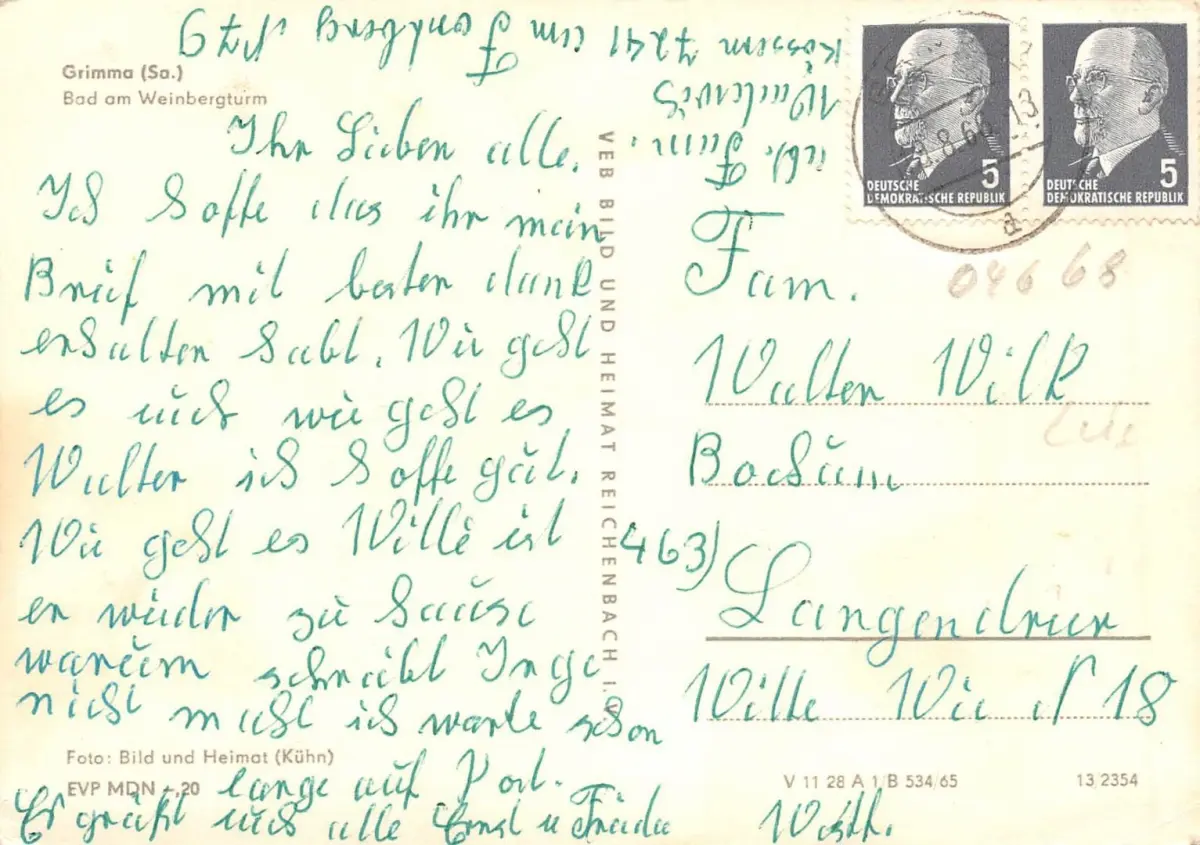 Grimma (Sa.)
Bad am Weinbergturm
Ihr Lieben alle.
Ich hoffe das ihr mein
Brief mit besten dank
erhalten habt. Wie geht
es euch wie geht es
Walter ich hoffe gut.
Wie geht es Wille ist
er wieder zu hause
warum schreibt Inge
nicht mahl ich warte schon
lange auf Post.
Es grüßt euch alle Ernst u Frieda
Foto: Bild und Heimat (Kühn)
EVP MDN -,20
VEB BILD UND HEIMAT REICHENBACH I. V.
abs. Fam.
Kössern 7241 am Nr 9
DEUTSCHE
DEMOKRATISCHE REPUBLIK
5
DEUTSCHE
DEMOKRATISCHE REPUBLIK
5
8.66-13
a
04668
Fam.
Walter Wilk
Bochum
463) Langendreer
Wille Wie N 18
Westf.
V 11 28 A 1/B 534/65
13 2354